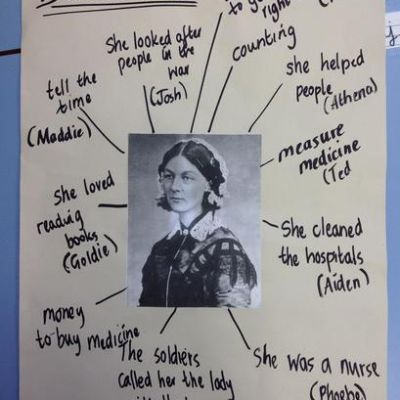 to
right
counting
She looked after
people in the
war
(Josh)
tell the
time
(Maddie)
she helped
people
(Athena)
measure
medicine
(Ted
She loved
reading
books
(Goldie)
She cleaned
the hospitals
(Aiden)
money
to buy medicine
The soldiers
called her the lady
She was a nurse
(Phoebe)